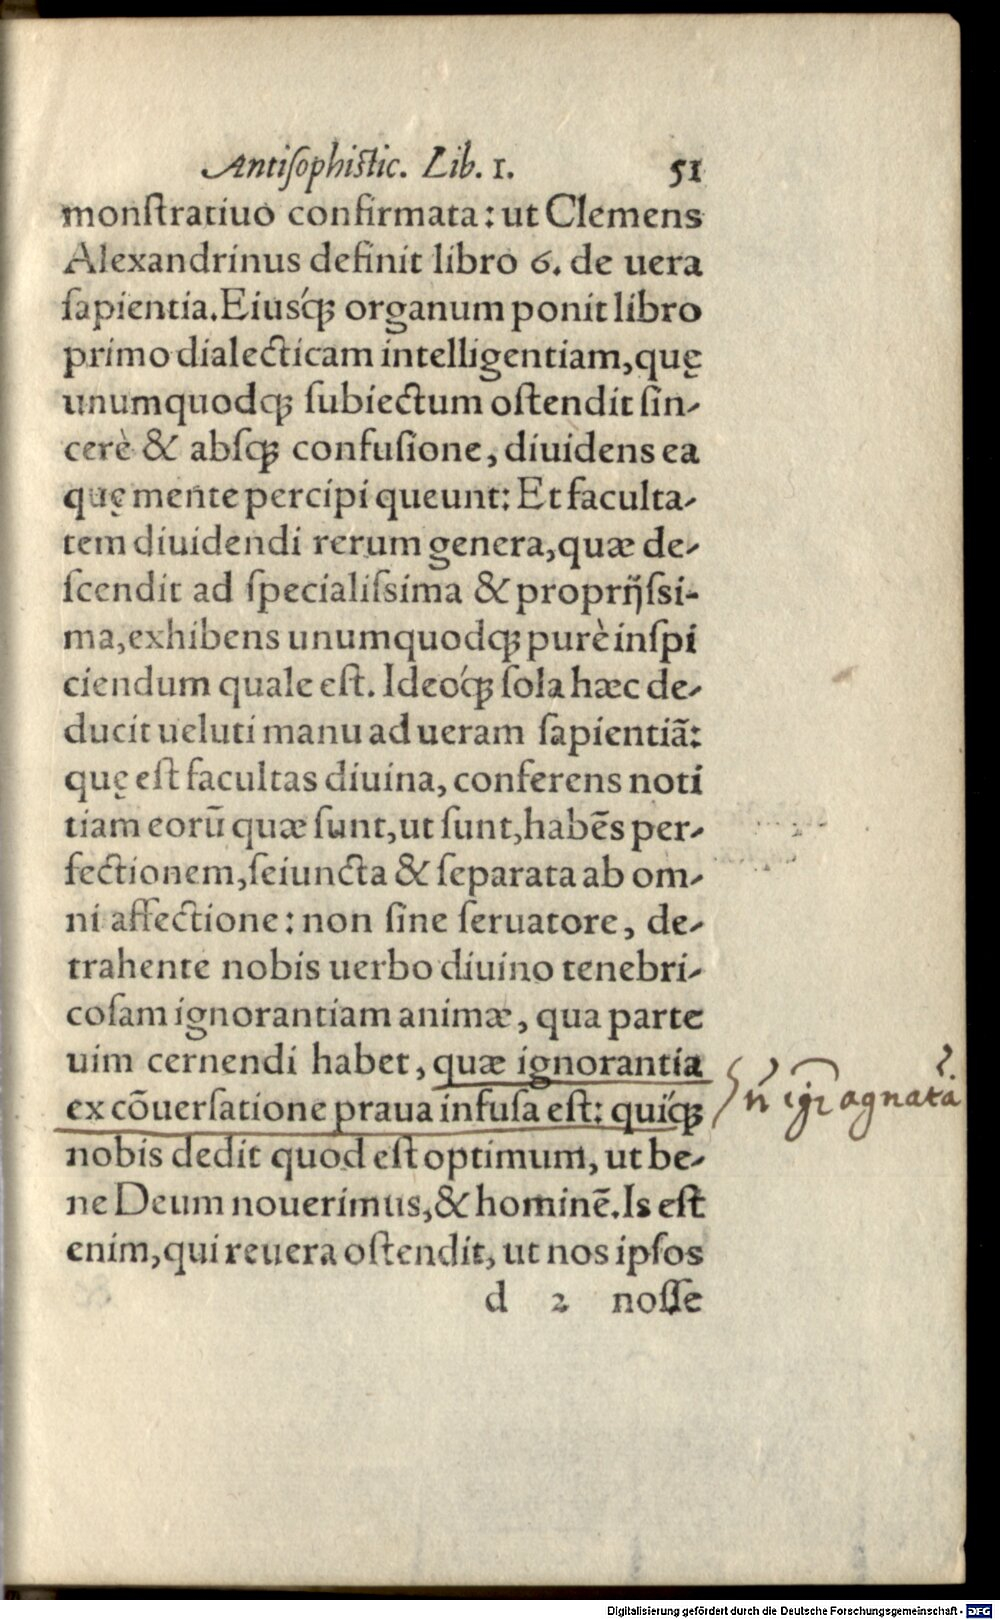 Antiſophiſtic. Lib. 1. 51
monſtratiuo confirmata: ut Clemens
Alexandrinus definit libro 6. de uera
ſapientia. Eiusq́ꝫ organum ponit libro
primo dialecticam intelligentiam, quę
unumquodqꝫ ſubiectum oſtendit ſin-
cerè & abſqꝫ confuſione, diuidens ea
quę mente percipi queunt: Et faculta-
tem diuidendi rerum genera, quæ de-
ſcendit ad ſpecialiſsima & proprijſsi-
ma, exhibens unumquodqꝫ purè inſpi
ciendum quale eſt. Ideoq́ꝫ ſola hæc de-
ducit ueluti manu ad ueram ſapientiã:
quę eſt facultas diuina, conferens noti
tiam eorũ quæ ſunt, ut ſunt, habẽs per-
fectionem, ſeiuncta & ſeparata ab om-
ni affectione: non ſine ſeruatore, de-
trahente nobis uerbo diuino tenebri-
coſam ignorantiam animæ, qua parte
uim cernendi habet, quæ ignorantia
ex cõuerſatione praua infuſa eſt: quiq́ꝫ
nobis dedit quod eſt optimum, ut be-
ne Deum nouerimus, & hominẽ. Is eſt
enim, qui reuera oſtendit, ut nos ipſos
d 2 noſſe
agnata
Digitalisierung gefördert durch die Deutsche Forschungsgemeinschaft - DFG